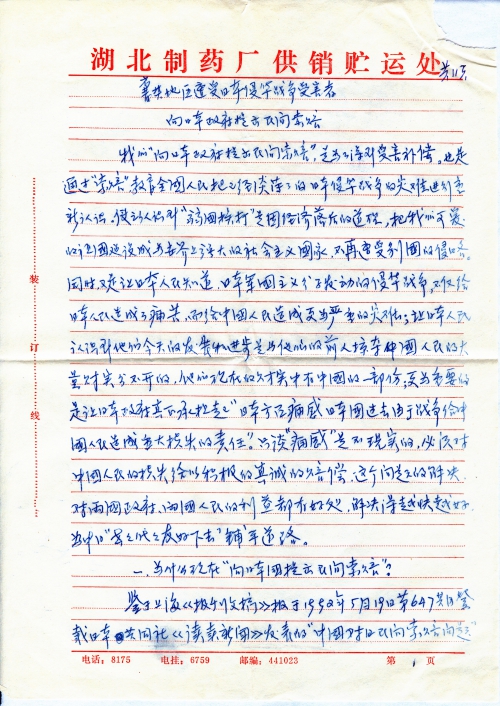 湖北制药厂供销贮运处
共11页
襄樊地区遭受日本侵华战争受害者
向日本政府提出民间索赔
我们"向日本政府提出民间索赔",是为了得到受害补偿,也是
通过"索赔"教育全国人民把已经淡薄了的日本侵华战争的灾难进行重
新认识,使之认识到"弱国挨打"是因经济落后的道理,把我们可爱
的祖国建设成为世界上强大的社会主义国家,不再遭受别国的侵略。
同时,是让日本人民知道,日本军国主义分子发动的侵华战争,不仅给
日本人民造成了痛苦,而给中国人民造成更为严重的灾难;让日本人民
认识到他们今天的发展和进步是与他们的前人掠夺中国人民的大
量财富分不开的,他们现在的财富中有中国的一部份,更为重要的
是让日本政府真正承担起"日本方面痛感日本国过去由于战争给中
国人民造成重大损失的责任"。只谈"痛感"是不现实的,必须对
中国人民的损失给以积极的真诚的赔偿,这个问题的解决
对两国政府、两国人民的利益都有好处,解决得越快越好
为中日"世世代代友好下去"铺平道路。
一、为什么现在"向日本国提出民间索赔"?
鉴于上海《报刊文摘》报于1992年5月19日第647期登
载日本共同社《读卖新闻》发表的"中国对日民间索赔问题"
装
订
线
电话:8175 电挂:6759 邮编:441023 第 1 页